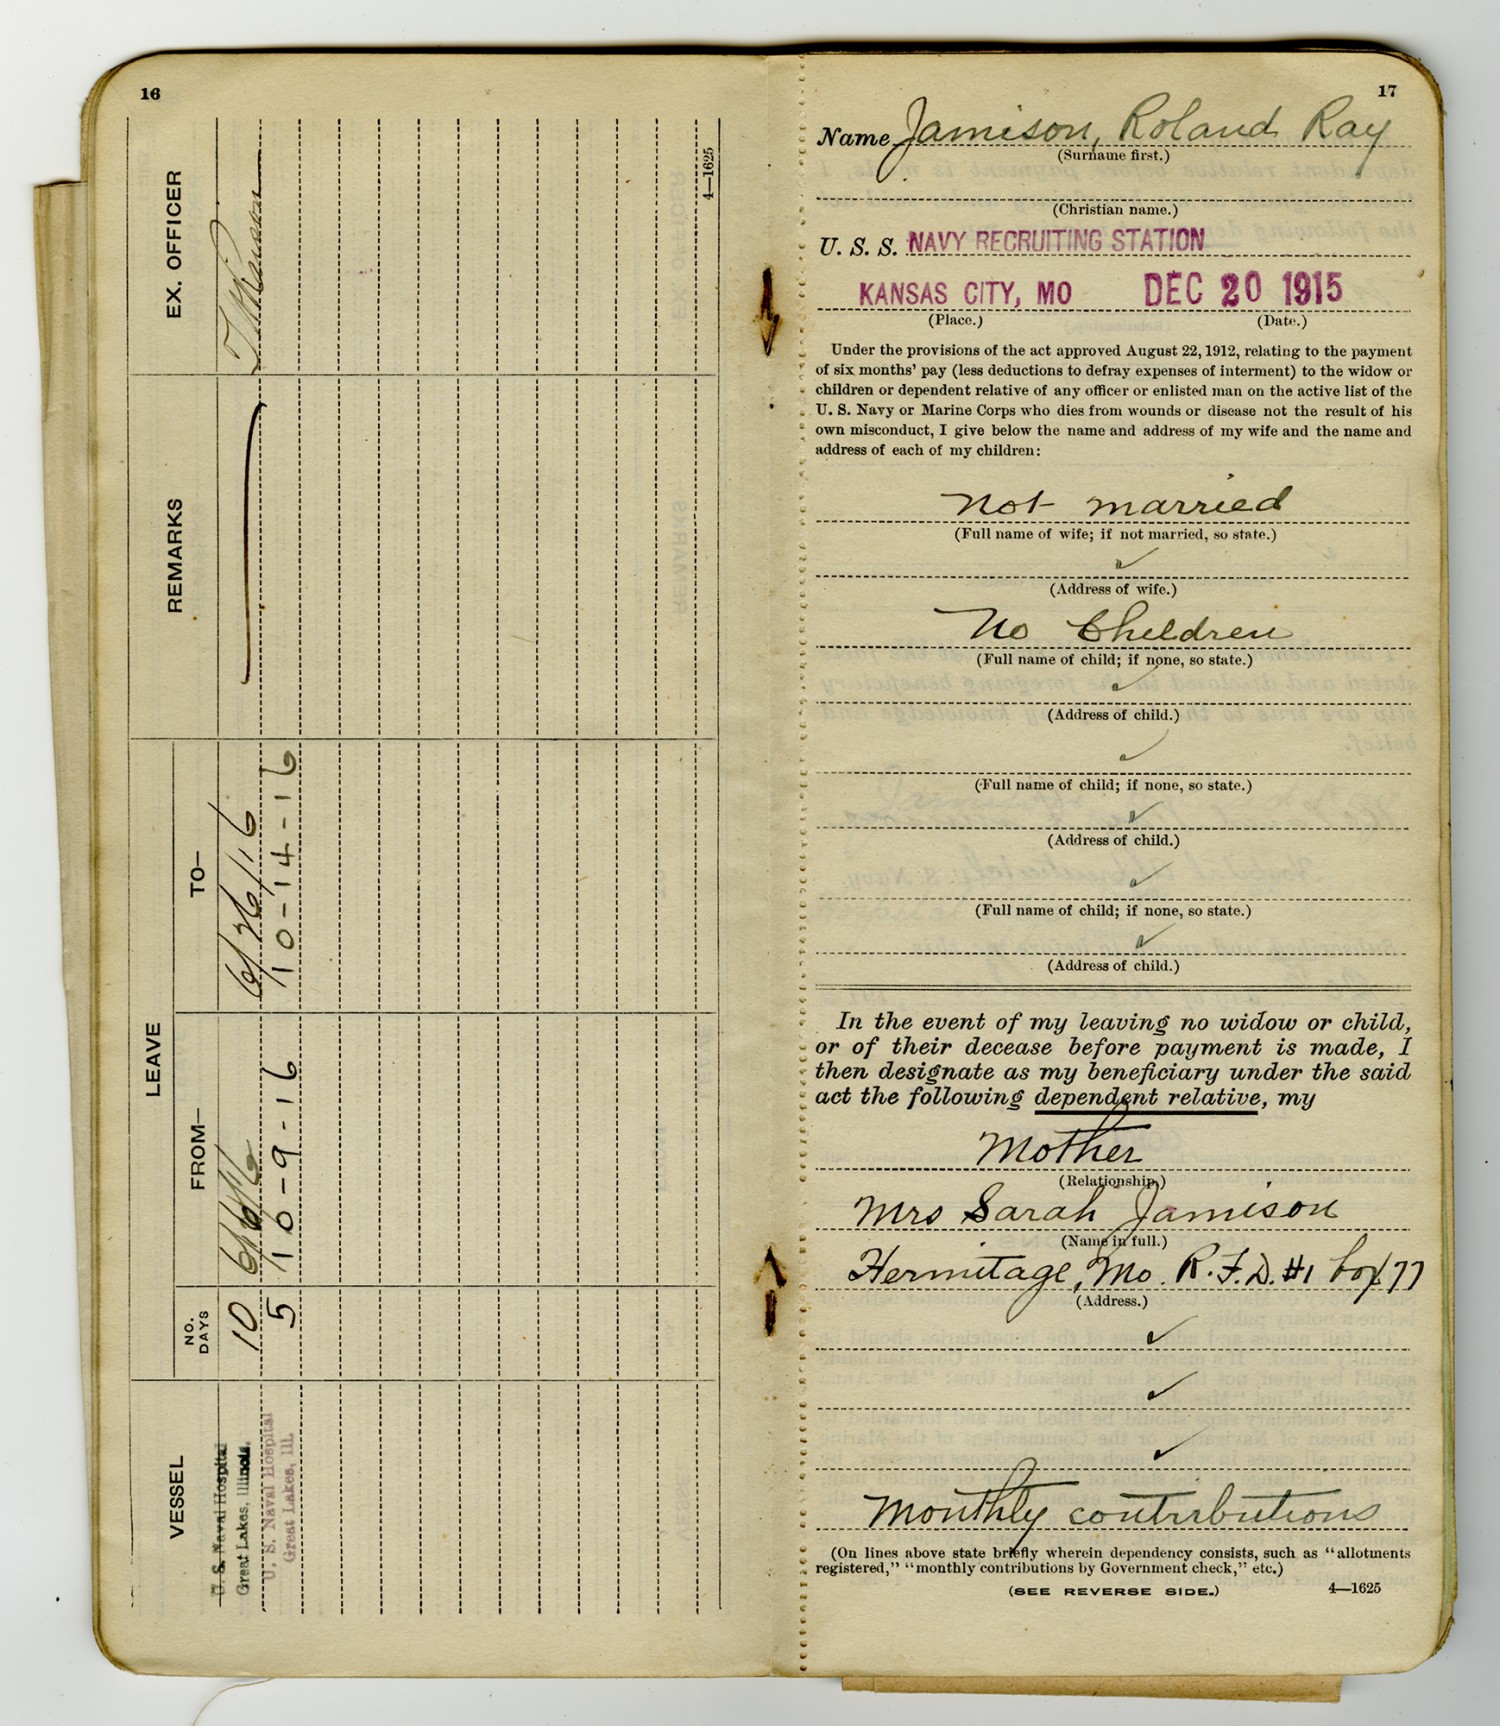 16
VESSEL
LEAVE
NO. DAYS
FROM—
TO—
REMARKS
EX. OFFICER
U. S. Naval Hospital
Great Lakes, Illinois.
10
6/6/16
6/26/16
U. S. Naval Hospital
Great Lakes, Ill.
5
10-9-16
10-14-16
4—1625
17
Name Jamison, Roland Ray
(Surname first.)
(Christian name.)
U. S. S. NAVY RECRUITING STATION
KANSAS CITY, MO DEC 20 1915
(Place.) (Date.)
Under the provisions of the act approved August 22, 1912, relating to the payment
of six months' pay (less deductions to defray expenses of interment) to the widow or
children or dependent relative of any officer or enlisted man on the active list of the
U. S. Navy or Marine Corps who dies from wounds or disease not the result of his
own misconduct, I give below the name and address of my wife and the name and
address of each of my children:
Not married
(Full name of wife; if not married, so state.)
(Address of wife.)
No Children
(Full name of child; if none, so state.)
(Address of child.)
(Full name of child; if none, so state.)
(Address of child.)
(Full name of child; if none, so state.)
(Address of child.)
In the event of my leaving no widow or child,
or of their decease before payment is made, I
then designate as my beneficiary under the said
act the following dependent relative, my
Mother
(Relationship.)
Mrs Sarah Jamison
(Name in full.)
Hermitage, Mo. R.F.D. #1 box 77
(Address.)
Monthly contributions
(On lines above state briefly wherein dependency consists, such as "allotments
registered," "monthly contributions by Government check," etc.)
(SEE REVERSE SIDE.) 4—1625